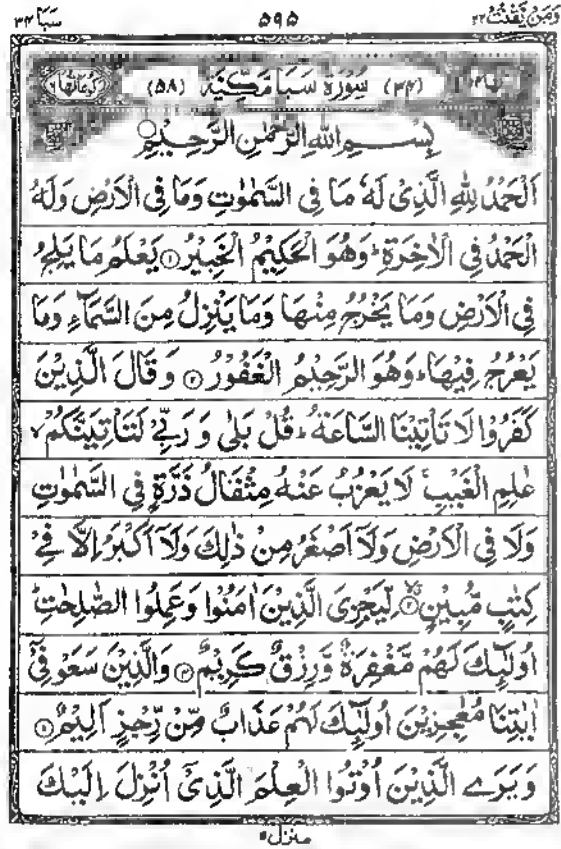 وَمَنْ يَّقْنُتْ ۲۲ ۵۹۵ سَبَا ۳۴
(۳۴) سُوْرَةُ سَبَا مَكِّيَّةٌ (۵۸) رکوعاتها ۶
بِسْمِ اللهِ الرَّحْمٰنِ الرَّحِيْمِ
اَلْحَمْدُ لِلّٰهِ الَّذِيْ لَهٗ مَا فِي السَّمٰوٰتِ وَمَا فِي الْاَرْضِ وَلَهُ
الْحَمْدُ فِي الْاٰخِرَةِ ؕ وَهُوَ الْحَكِيْمُ الْخَبِيْرُ ۝۱ يَعْلَمُ مَا يَلِجُ
فِي الْاَرْضِ وَمَا يَخْرُجُ مِنْهَا وَمَا يَنْزِلُ مِنَ السَّمَآءِ وَمَا
يَعْرُجُ فِيْهَا ؕ وَهُوَ الرَّحِيْمُ الْغَفُوْرُ ۝۲ وَقَالَ الَّذِيْنَ
كَفَرُوْا لَا تَاْتِيْنَا السَّاعَةُ ؕ قُلْ بَلٰى وَرَبِّيْ لَتَاْتِيَنَّكُمْ ۙ
عٰلِمِ الْغَيْبِ ۚ لَا يَعْزُبُ عَنْهُ مِثْقَالُ ذَرَّةٍ فِي السَّمٰوٰتِ
وَلَا فِي الْاَرْضِ وَلَآ اَصْغَرُ مِنْ ذٰلِكَ وَلَآ اَكْبَرُ اِلَّا فِيْ
كِتٰبٍ مُّبِيْنٍ ۝۳ لِّيَجْزِيَ الَّذِيْنَ اٰمَنُوْا وَعَمِلُوا الصّٰلِحٰتِ ؕ
اُولٰٓئِكَ لَهُمْ مَّغْفِرَةٌ وَّرِزْقٌ كَرِيْمٌ ۝۴ وَالَّذِيْنَ سَعَوْ فِيْٓ
اٰيٰتِنَا مُعٰجِزِيْنَ اُولٰٓئِكَ لَهُمْ عَذَابٌ مِّنْ رِّجْزٍ اَلِيْمٌ ۝۵
وَيَرَى الَّذِيْنَ اُوْتُوا الْعِلْمَ الَّذِيْٓ اُنْزِلَ اِلَيْكَ
منزل ۵